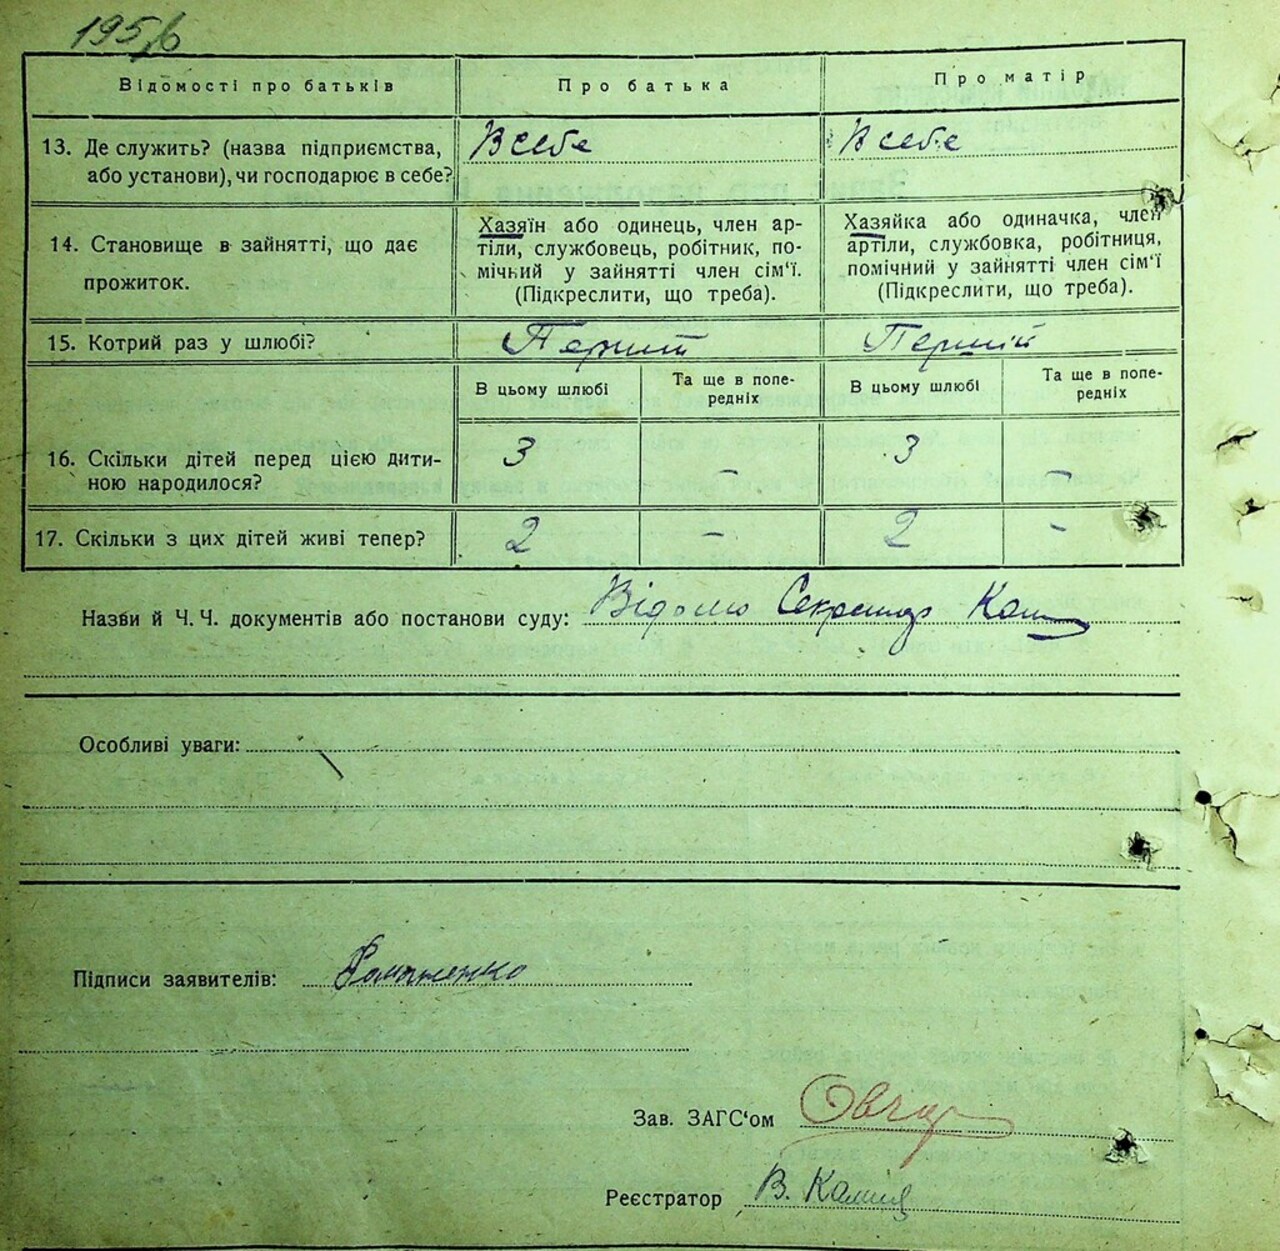 195
Відомості про батьків Про батька Про матір
13. Де служить? (назва підприємства, або установи), чи господарює в себе? В себе В себе
14. Становище в зайнятті, що дає прожиток.
Хазяїн або одинець, член ар-
тіли, службовець, робітник, по-
мічний у зайнятті член сім‘ї.
(Підкреслити, що треба).
Хазяйка або одиначка, член
артіли, службовка, робітниця,
помічний у зайнятті член сім‘ї
(Підкреслити, що треба).
15. Котрий раз у шлюбі? Перший Перший
В цьому шлюбі Та ще в попе-редніх В цьому шлюбі Та ще в попе-редніх
16. Скільки дітей перед цією дити-ною народилося? 3 – 3 –
17. Скільки з цих дітей живі тепер? 2 – 2 –
Назви й Ч. Ч. документів або постанови суду: Відомо Секретар
Особливі уваги:
Підписи заявителів:
Зав. ЗАГС‘ом Овчар
Реєстратор В.